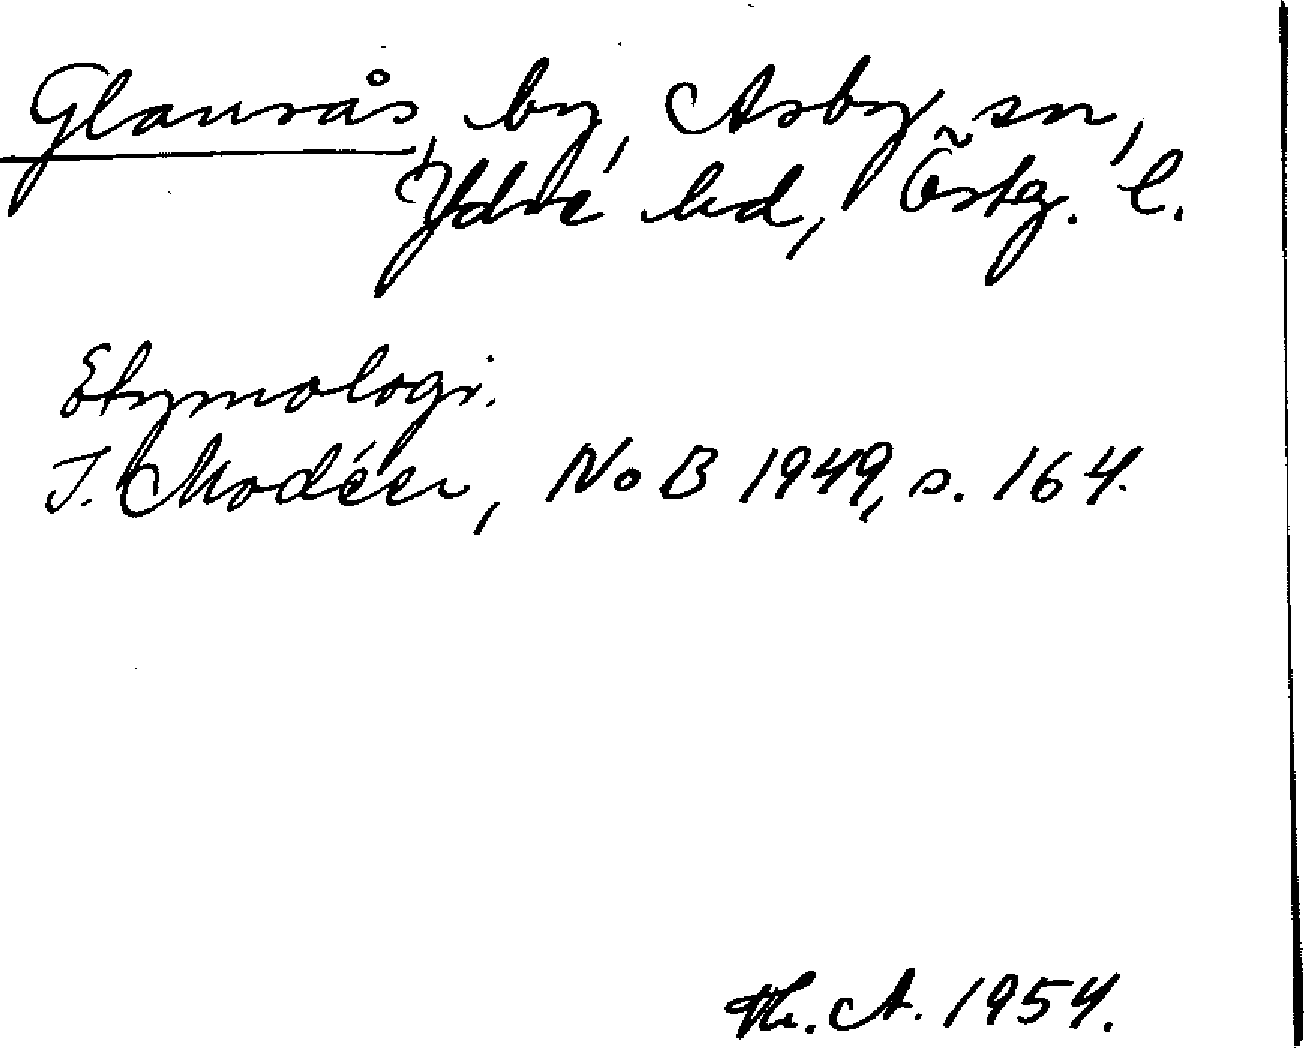 Glansås, by, Asby sn,
Ydre hd, Östg. l.
Etymologi.
I. Modéer, NoB 1949, s. 164.
Th. A. 1954.